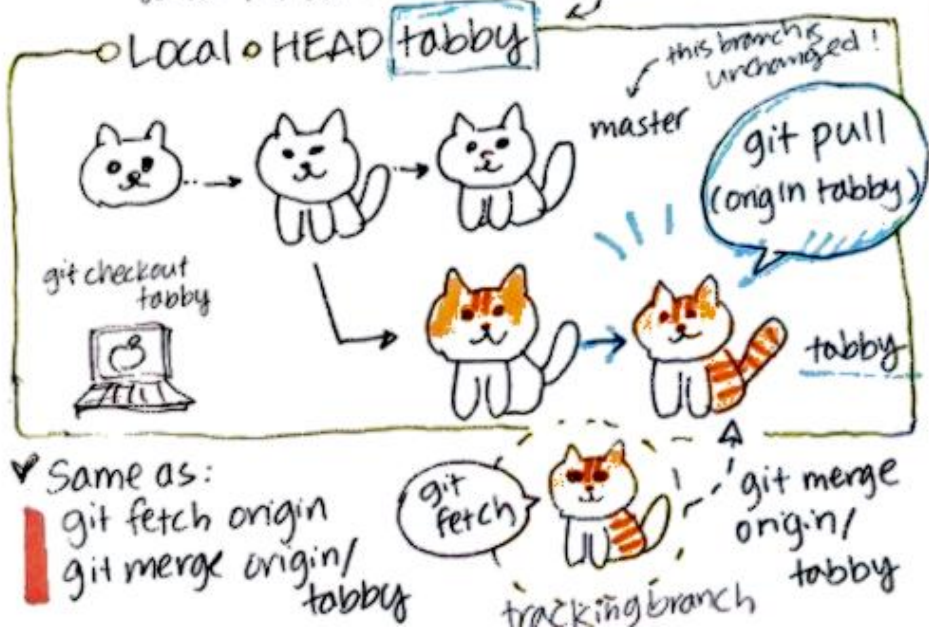 Local • HEAD tabby
this branch is
unchanged!
master
git pull
(origin tabby)
git checkout
tabby
tabby
✓ Same as:
git fetch origin
git merge origin/
tabby
git
fetch
git merge
origin/
tabby
tracking branch